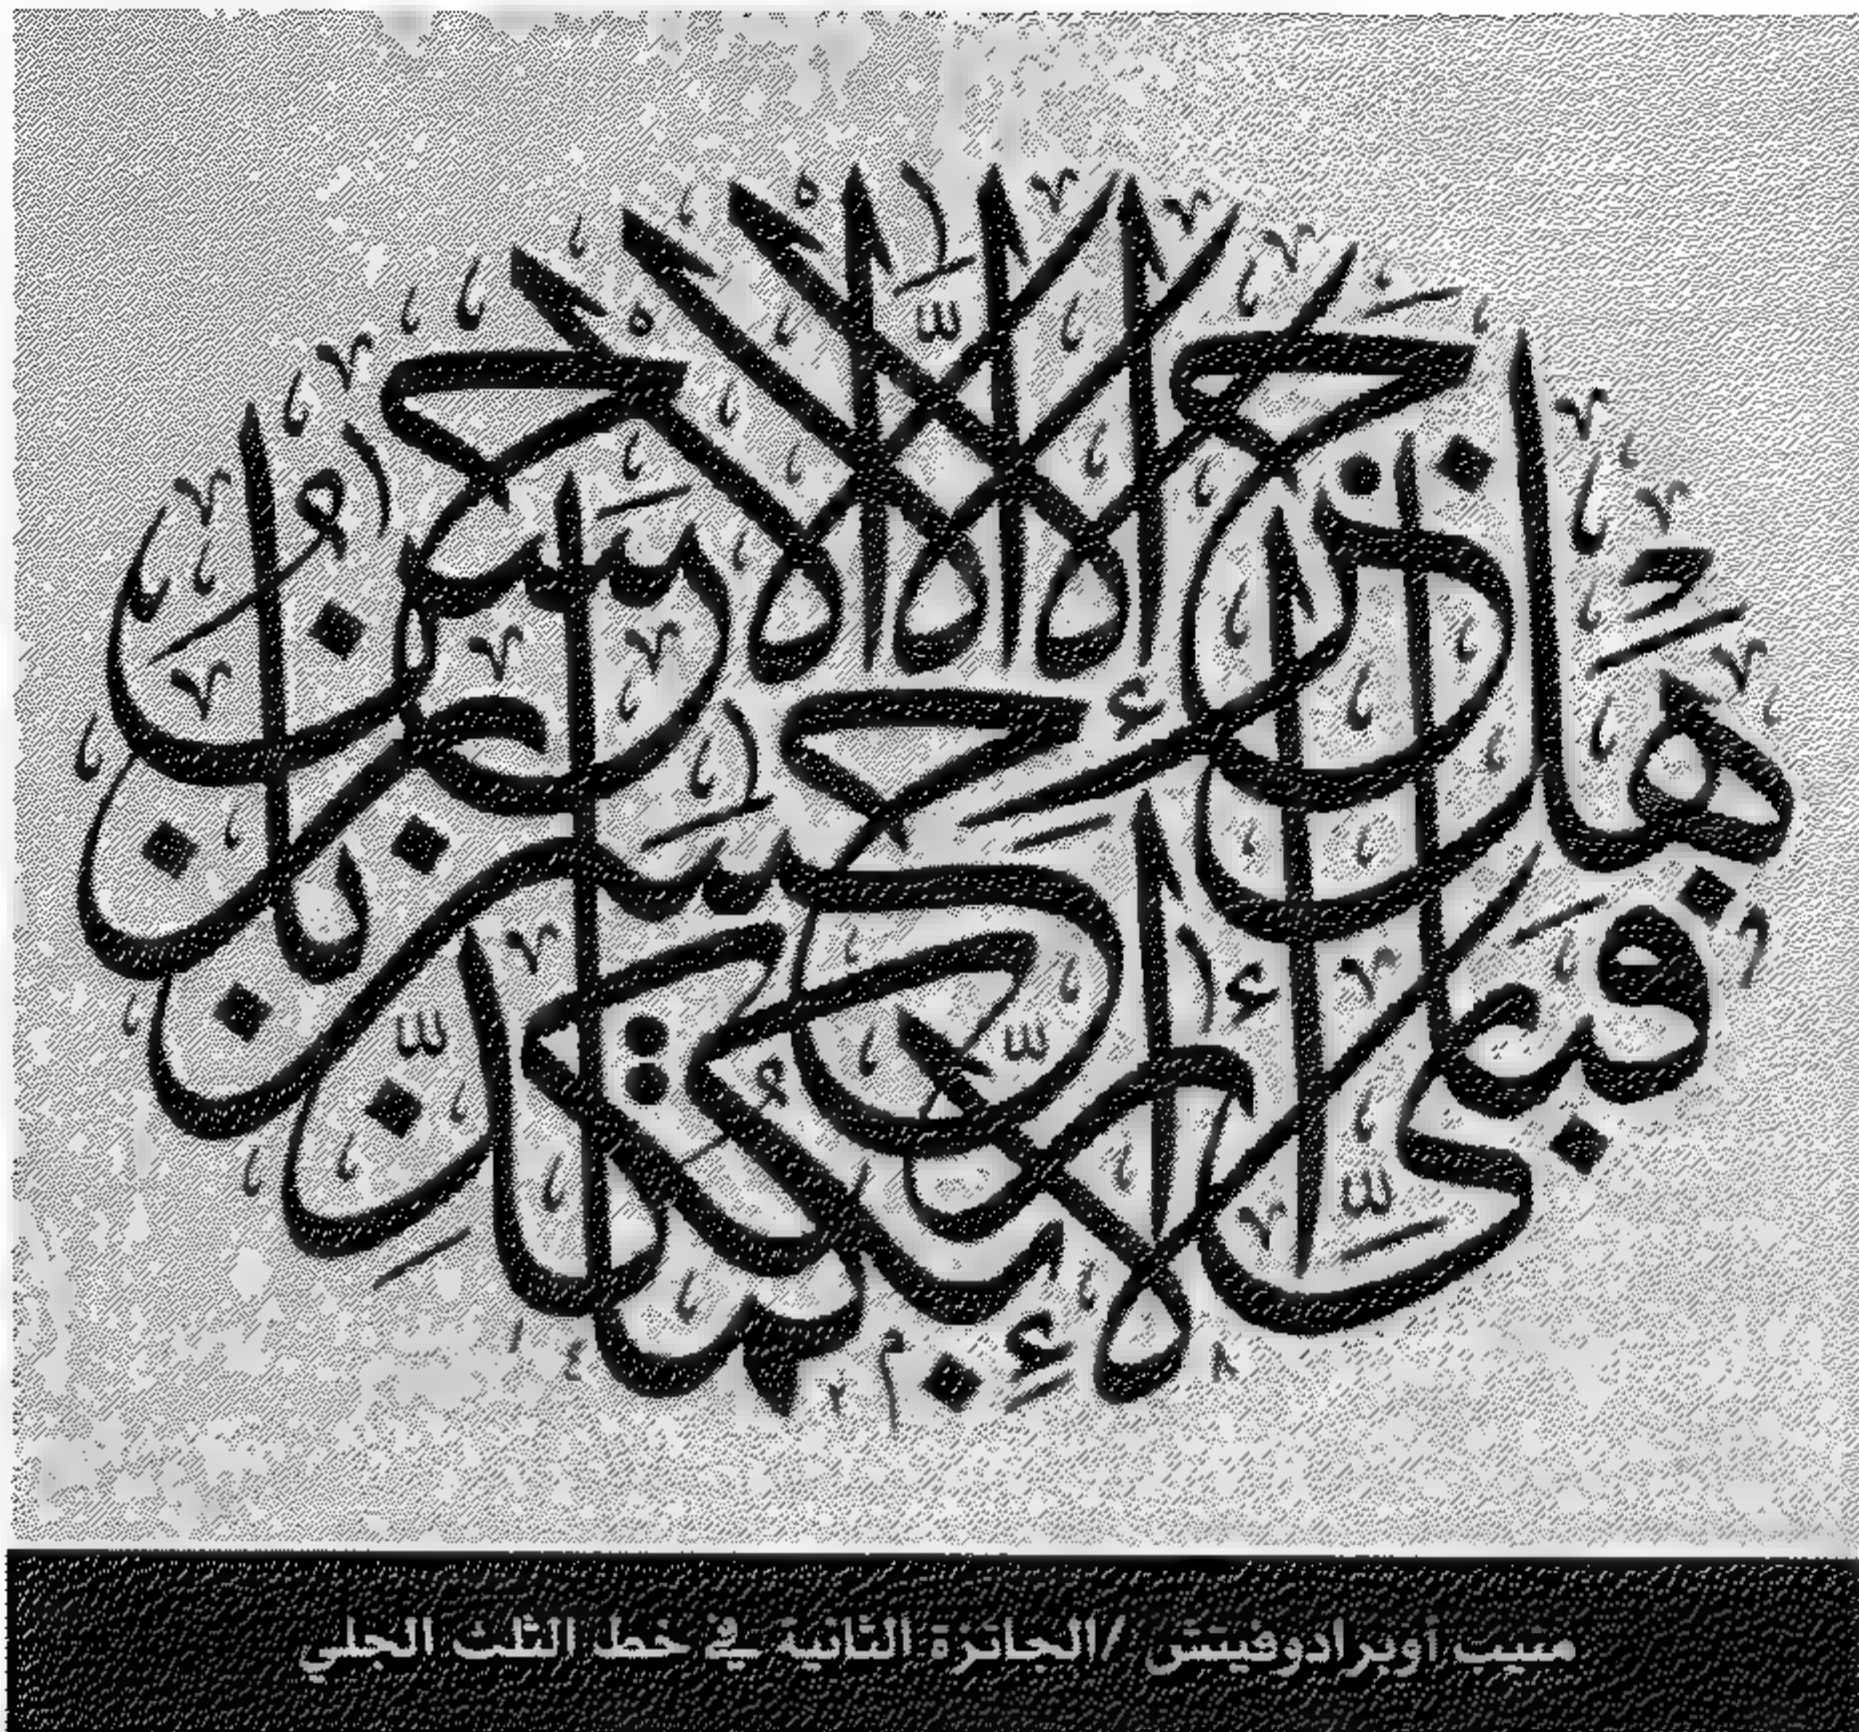 هَلْ جَزَاءُ الْإِحْسَانِ إِلَّا الْإِحْسَانُ فَبِأَيِّ آلَاءِ رَبِّكُمَا تُكَذِّبَانِ
منيب أوبرادوفيتش /الجائزة الثانية في خط الثلث الجلي